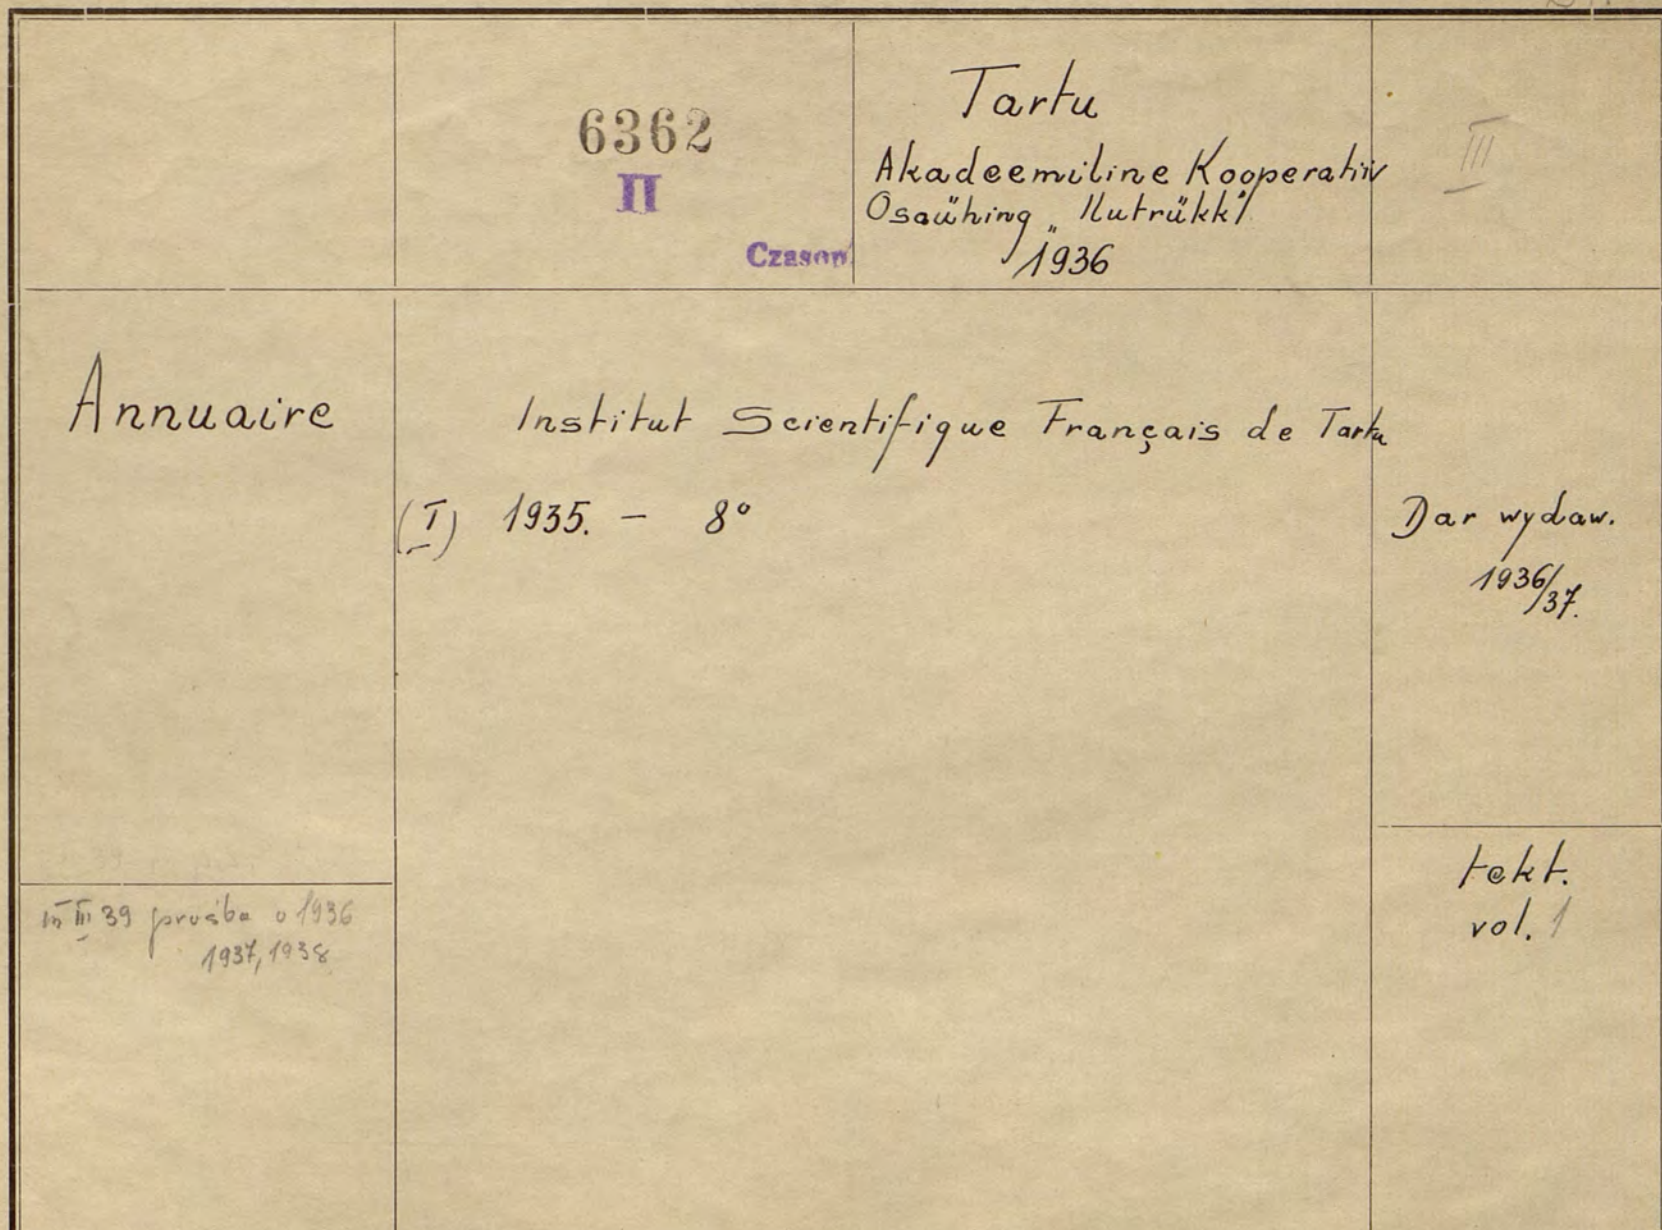 6362
II
Czasop.
Tartu
Akadeemiline Kooperatiiv
Osaühing „Ilutrükk”
1936
III
Annuaire
Institut Scientifique Français de Tartu
(I) 1935. – 8°
Dar wydaw.
1936/37.
tekt.
vol. 1
III 39 prośba o 1936
1937, 1938